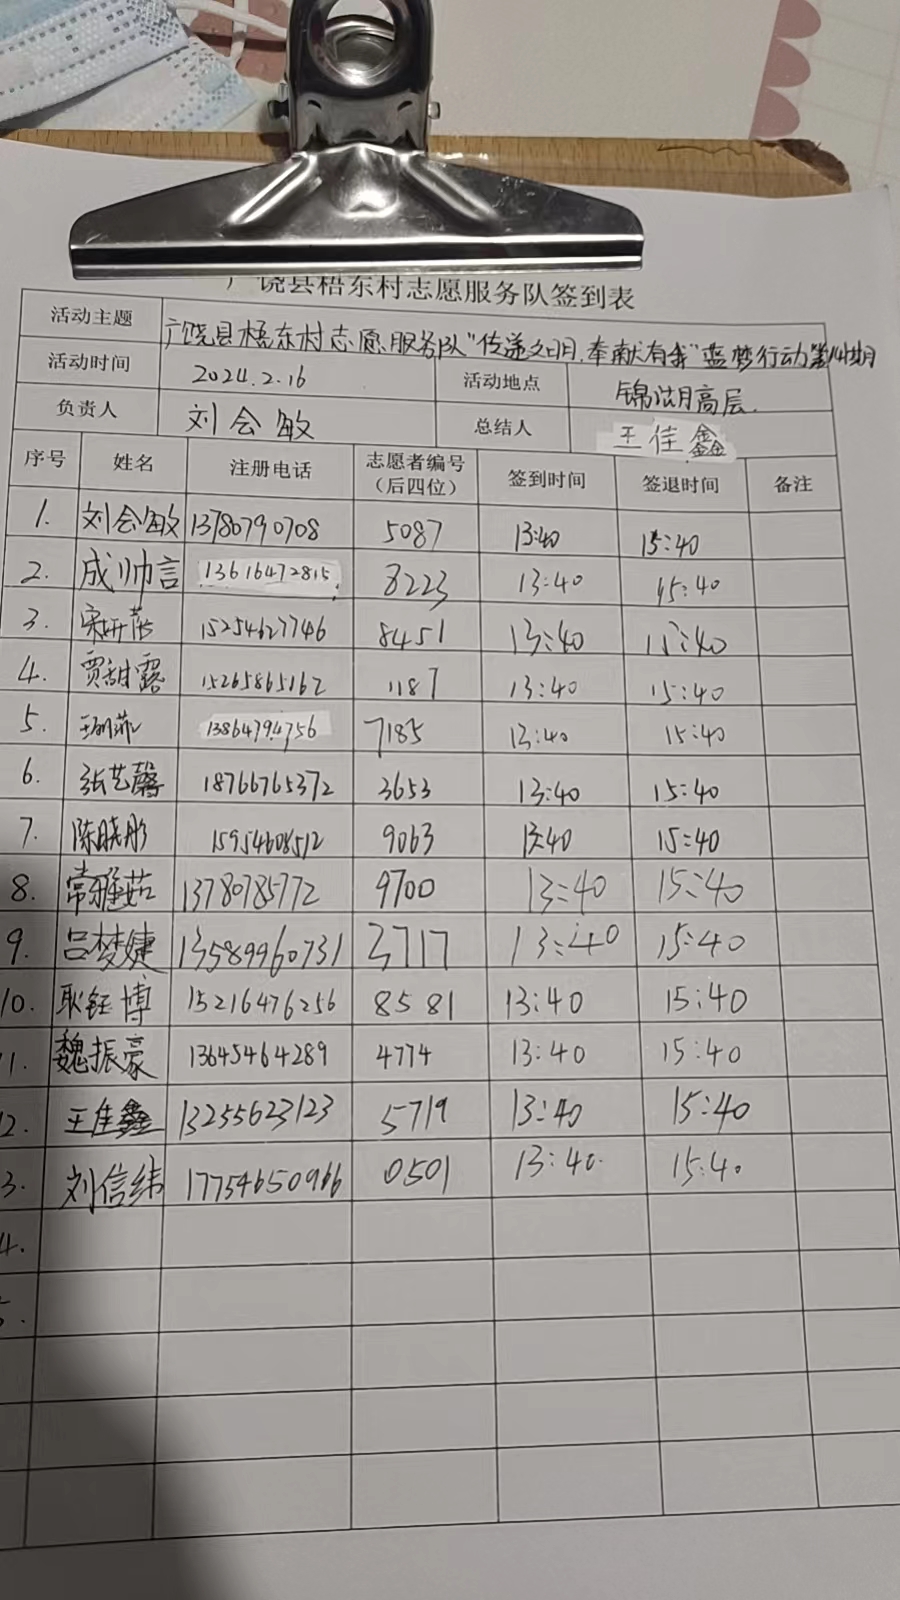 饶县梧东村志愿服务队签到表
活动主题 广饶县梧东村志愿服务队"传递文明,奉献有我"蓝梦行动第期
活动时间 2024.2.16 活动地点 锦湖高层.
负责人 刘会敏 总结人 王佳鑫
序号 姓名 注册电话 志愿者编号 (后四位) 签到时间 签退时间 备注
1. 刘会敏 13780790708 5087 13:40 15:40
2. 成帅言 13616472815 8223 13:40 15:40
3. 宋妍 15254627746 8451 13:40 15:40
4. 贾甜露 15265865162 1187 13:40 15:40
5. 13864794756 7185 13:40 15:40
6. 张艺馨 18766765372 3653 13:40 15:40
7. 陈晓彤 15954608512 9063 13:40 15:40
8. 常雅茹 13780785772 9700 13:40 15:40
9. 吕梦婕 13589960731 3717 13:40 15:40
10. 耿钰博 15216476256 8581 13:40 15:40
1. 魏振豪 13645464289 4774 13:40 15:40
2. 王佳鑫 13255623123 5719 13:40 15:40
3. 刘信纬 17754650966 0501 13:40. 15:40
4.
5.